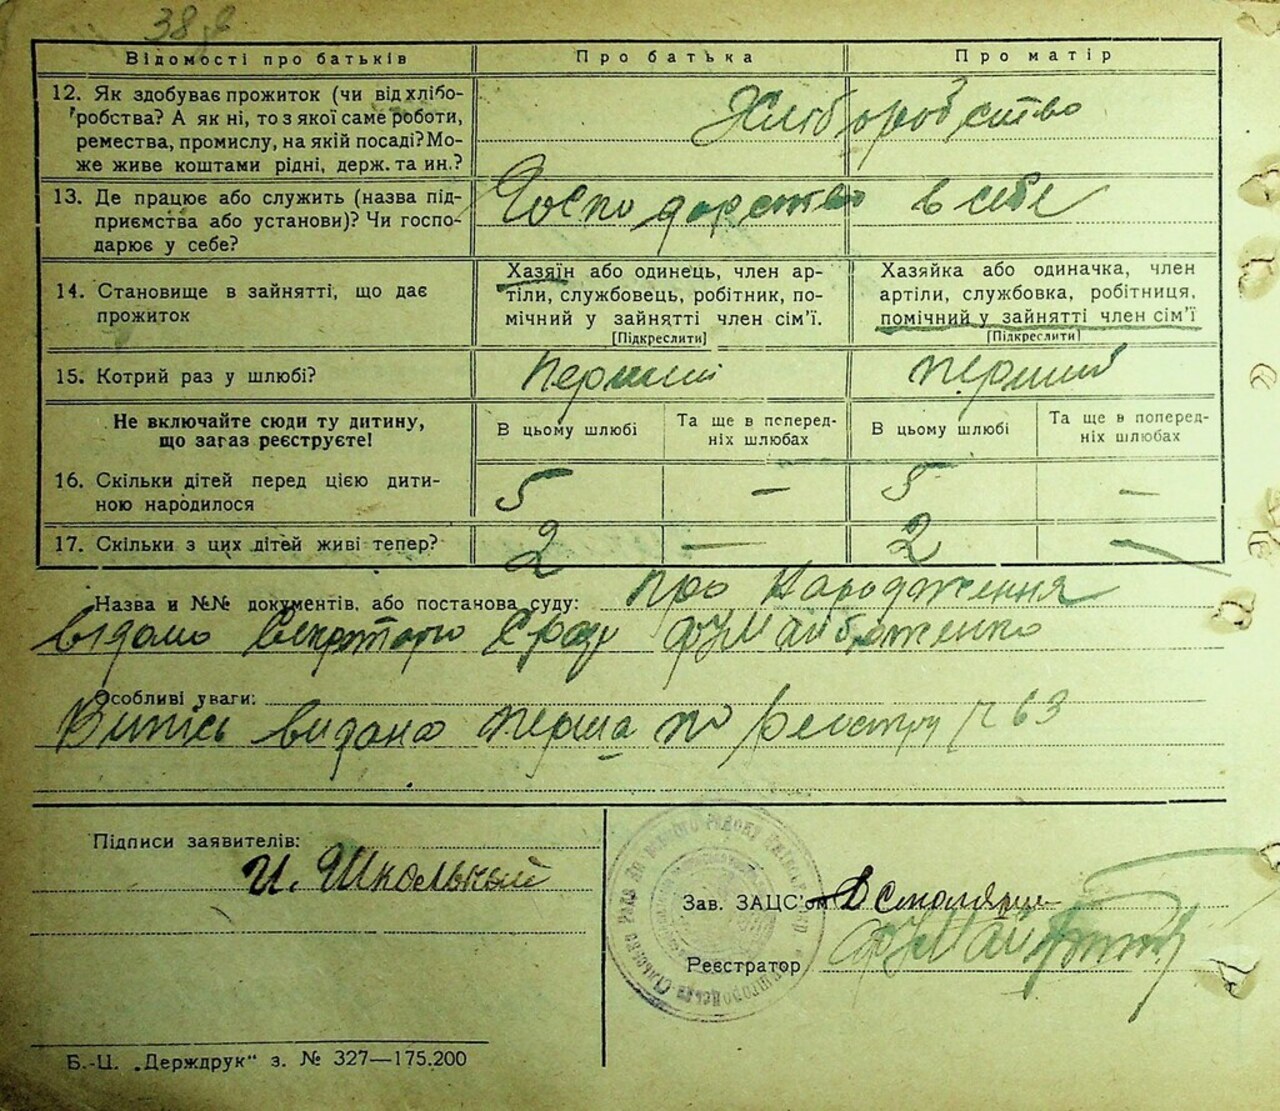 38
Відомості про батьків
Про батька
Про матір
12. Як здобуває прожиток (чи від хлібо-
робства? А як ні, то з якої саме роботи,
ремества, промислу, на якій посаді? Мо-
же живе коштами рідні, держ. та ин.?
Хліборобство
13. Де працює або служить (назва під-
приємства або установи)? Чи госпо-
дарює у себе?
Господарство в себе
14. Становище в зайнятті, що дає
прожиток
Хазяїн або одинець, член ар-
тіли, службовець, робітник, по-
мічний у зайнятті член сім'ї.
[Підкреслити]
Хазяйка або одиначка, член
артіли, службовка, робітниця,
помічний у зайнятті член сім'ї
[Підкреслити]
15. Котрий раз у шлюбі?
Перший
перший
Не включайте сюди ту дитину,
що загаз реєструєте!
В цьому шлюбі
Та ще в поперед-
ніх шлюбах
В цьому шлюбі
Та ще в поперед-
ніх шлюбах
16. Скільки дітей перед цією дити-
ною народилося
5 — 5 —
17. Скільки з цих дітей живі тепер?
2 — 2 —
Назва и №№ документів, або постанова суду: про Народження
відомо Секретарю С/раду Майбоженко
Особливі уваги:
Витяг видано перша по реєстру № 63
Підписи заявителів:
И. Школьный
Зав. ЗАЦС'ом Смоляр
Реєстратор
Б.-Ц. „Держдрук" з. № 327—175.200